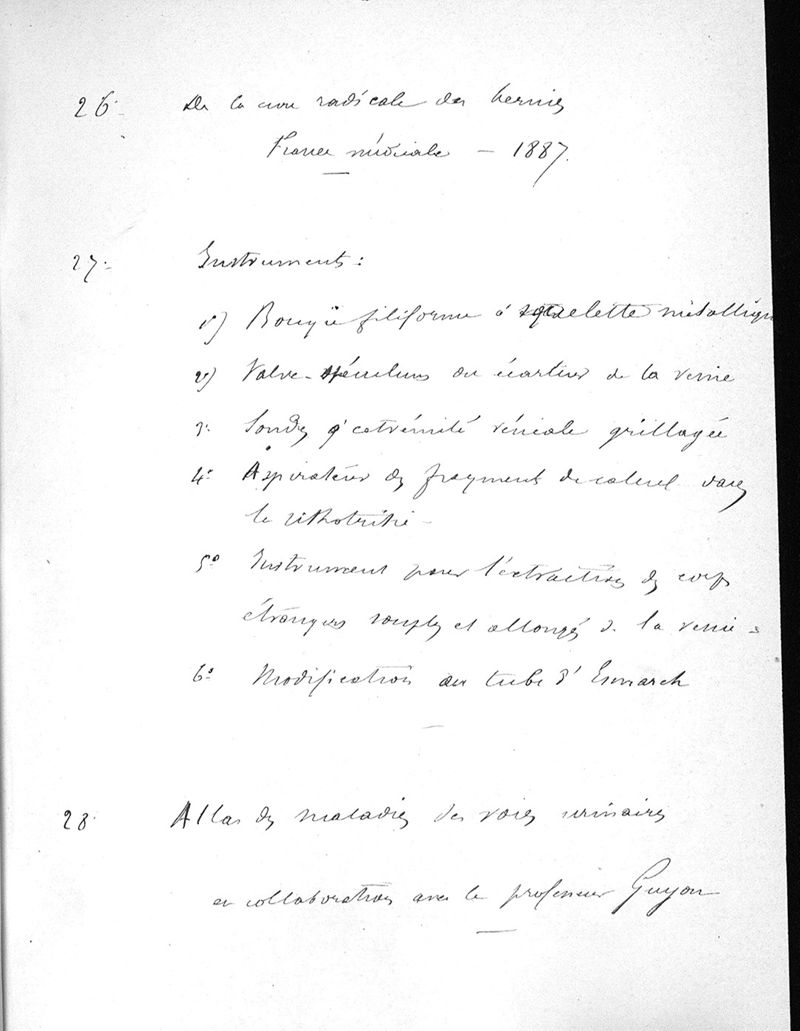 26. De la cure radicale des hernies
France médicale — 1887.
27. Instruments :
1º) Bougie filiforme à squelette métallique
2º) Valve-spéculum ou écarteur de la vessie
3º Sondes d'extrémité vésicale grillagée
4º Aspirateur des fragments de calcul dans
la lithotritie —
5º Instrument pour l'extraction des corps
étrangers souples et allongés de la vessie.
6º Modification au tube d'Esmarch
28. Atlas des maladies des voies urinaires
en collaboration avec le professeur Guyon